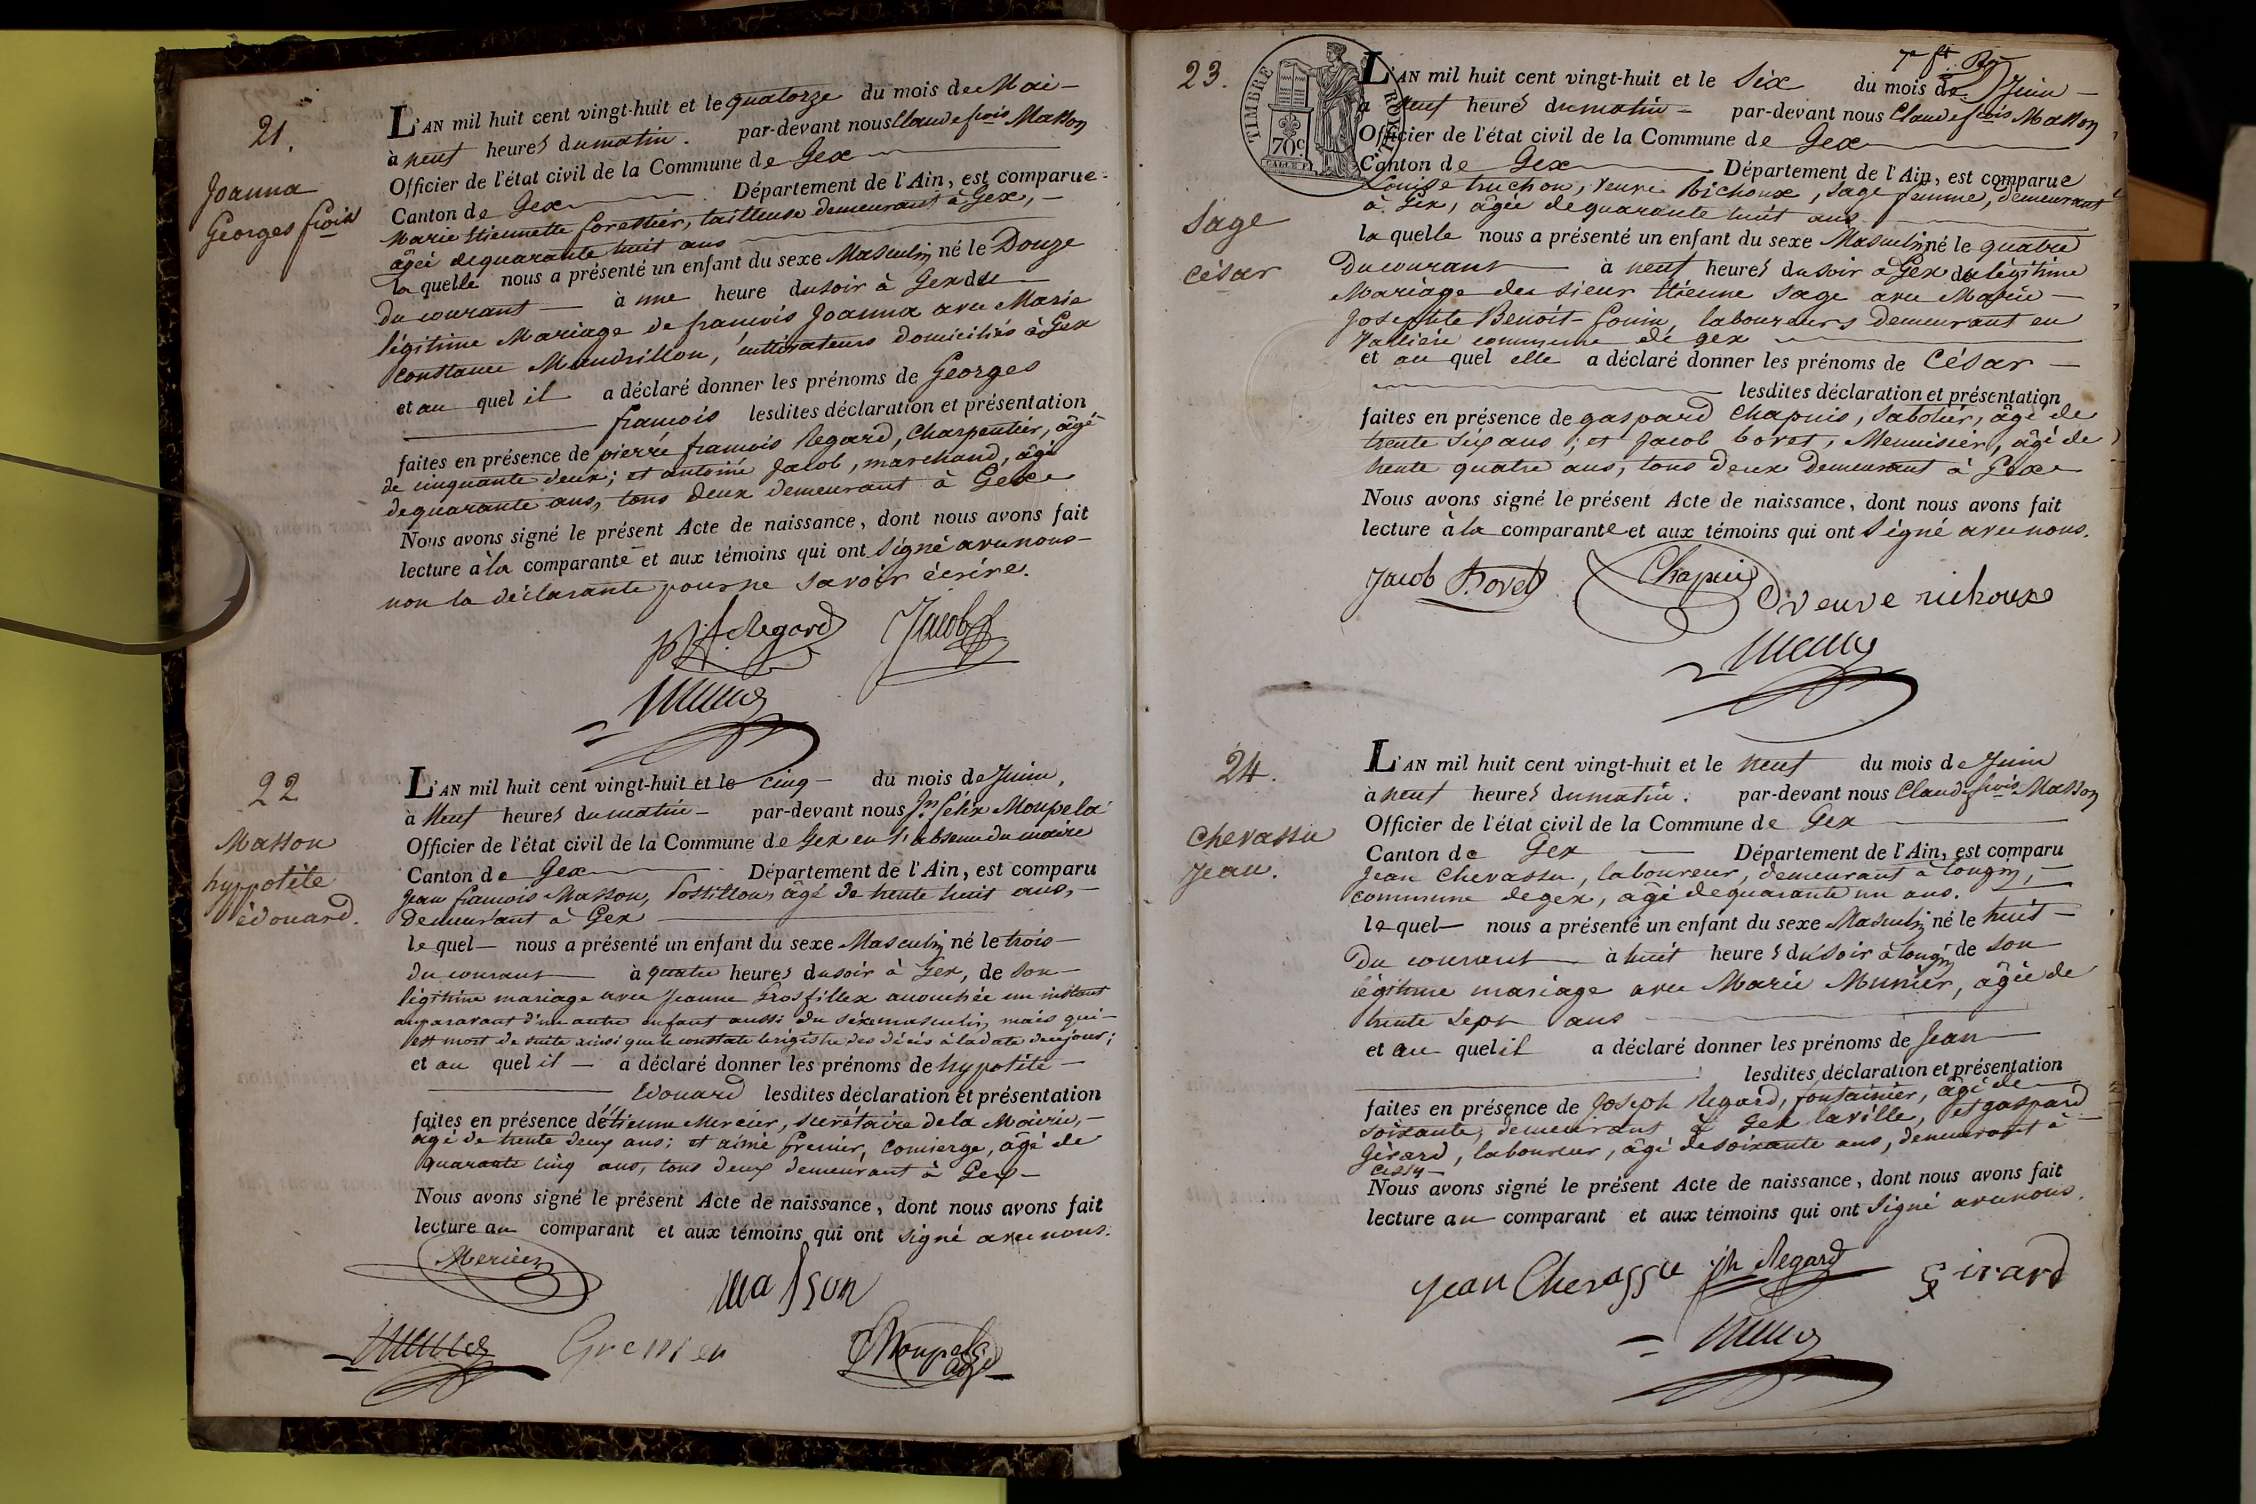 21.
Joanna
Georges frois
L'AN mil huit cent vingt-huit et le quatorze du mois de Mai -
à neuf heures du matin. par-devant nous Claude frois Masson
Officier de l'état civil de la Commune de Gex
Canton de Gex Département de l'Ain, est comparue
Marie Etiennette forestier, tailleuse demeurant à Gex, -
âgée de quarante huit ans
la quelle nous a présenté un enfant du sexe Masculin né le Douze
du courant à une heure du soir à Gex du
légitime Mariage de francois Joanna avec Marie
constance Mandrillon, cultivateurs domiciliés à Gex
et au quel il a déclaré donner les prénoms de Georges
francois lesdites déclaration et présentation
faites en présence de pierre francois Regard, Charpentier, âgé
de cinquante deux; et antoine Jacob, marchand, âgé
de quarante ans, tous deux demeurant à Gex
Nous avons signé le présent Acte de naissance, dont nous avons fait
lecture à la comparante et aux témoins qui ont signé avec nous -
non la déclarante pour ne savoir écrire.
p f Regard Jacob
22
Masson
hyppolite
édouard.
L'AN mil huit cent vingt-huit et le cinq - du mois de Juin,
à Neuf heures du matin - par-devant nous Jn félix Moupela
Officier de l'état civil de la Commune de Gex en l'absence du maire
Canton de Gex Département de l'Ain, est comparu
Jean francois Masson, Postillon, âgé de trente huit ans, -
demeurant à Gex
le quel - nous a présenté un enfant du sexe Masculin né le trois -
du courant à quatre heures du soir à Gex, de son -
légitime mariage avec Jeanne Grosfillex accouchée un instant
auparavant d'un autre enfant aussi du sèxe masculin, mais qui -
est mort de suite ainsi que le constate le régistre des décès à la date de ce jour;
et au quel il - a déclaré donner les prénoms de hypolite -
Edouard lesdites déclaration et présentation
faites en présence d'étienne Mercier, secrétaire de la Mairie, -
âgé de trente deux ans; et aimé Grenier, concierge, âgé de
quarante cinq ans, tous deux demeurant à Gex -
Nous avons signé le présent Acte de naissance, dont nous avons fait
lecture au comparant et aux témoins qui ont signé avec nous.
Mercier
masson
Grenier
Moupela
adjt
23.
Sage
César
TIMBRE ROYAL
70c
L'AN mil huit cent vingt-huit et le Six du mois de Juin -
à neuf heures du matin - par-devant nous Claude frois Masson
Officier de l'état civil de la Commune de Gex
Canton de Gex Département de l'Ain, est comparue
Louise truchon, veuve Richoux, sage femme, demeurant
à Gex, âgée de quarante huit ans
la quelle nous a présenté un enfant du sexe Masculin né le quatre
du courant à neuf heures du soir à Gex du légitime
Mariage du sieur Etienne Sage avec Marie -
Josephte Benoit-Gonin, laboureurs demeurant en
Vallière commune de gex
et au quel elle a déclaré donner les prénoms de César -
lesdites déclaration et présentation
faites en présence de gaspard Chapuis, sabotier, âgé de
trente six ans; et Jacob bovet, Menuisier, âgé de
trente quatre ans, tous deux demeurant à Gex
Nous avons signé le présent Acte de naissance, dont nous avons fait
lecture à la comparante et aux témoins qui ont Signé avec nous.
Jacob Bovet Chapuis
veuve richoux
24.
Chevassu
Jean.
L'AN mil huit cent vingt-huit et le neuf du mois de Juin
à neuf heures du matin. par-devant nous Claude frois Masson
Officier de l'état civil de la Commune de Gex
Canton de Gex Département de l'Ain, est comparu
Jean Chevassu, laboureur, demeurant à tougin, -
commune de gex, âgé de quarante un ans.
le quel - nous a présenté un enfant du sexe Masculin né le huit -
du courant à huit heures du soir à tougin de son
légitime mariage avec Marie Munier, âgée de
trente sept ans
et au quel il a déclaré donner les prénoms de Jean
lesdites déclaration et présentation
faites en présence de Joseph Regard, fontainier, âgé de
soixante, demeurant à Gex la ville, et gaspard
Gérard, laboureur, âgé de soixante ans, demeurant à
Cessy -
Nous avons signé le présent Acte de naissance, dont nous avons fait
lecture au comparant et aux témoins qui ont signé avec nous.
Jean Chevassu jh Regard girard